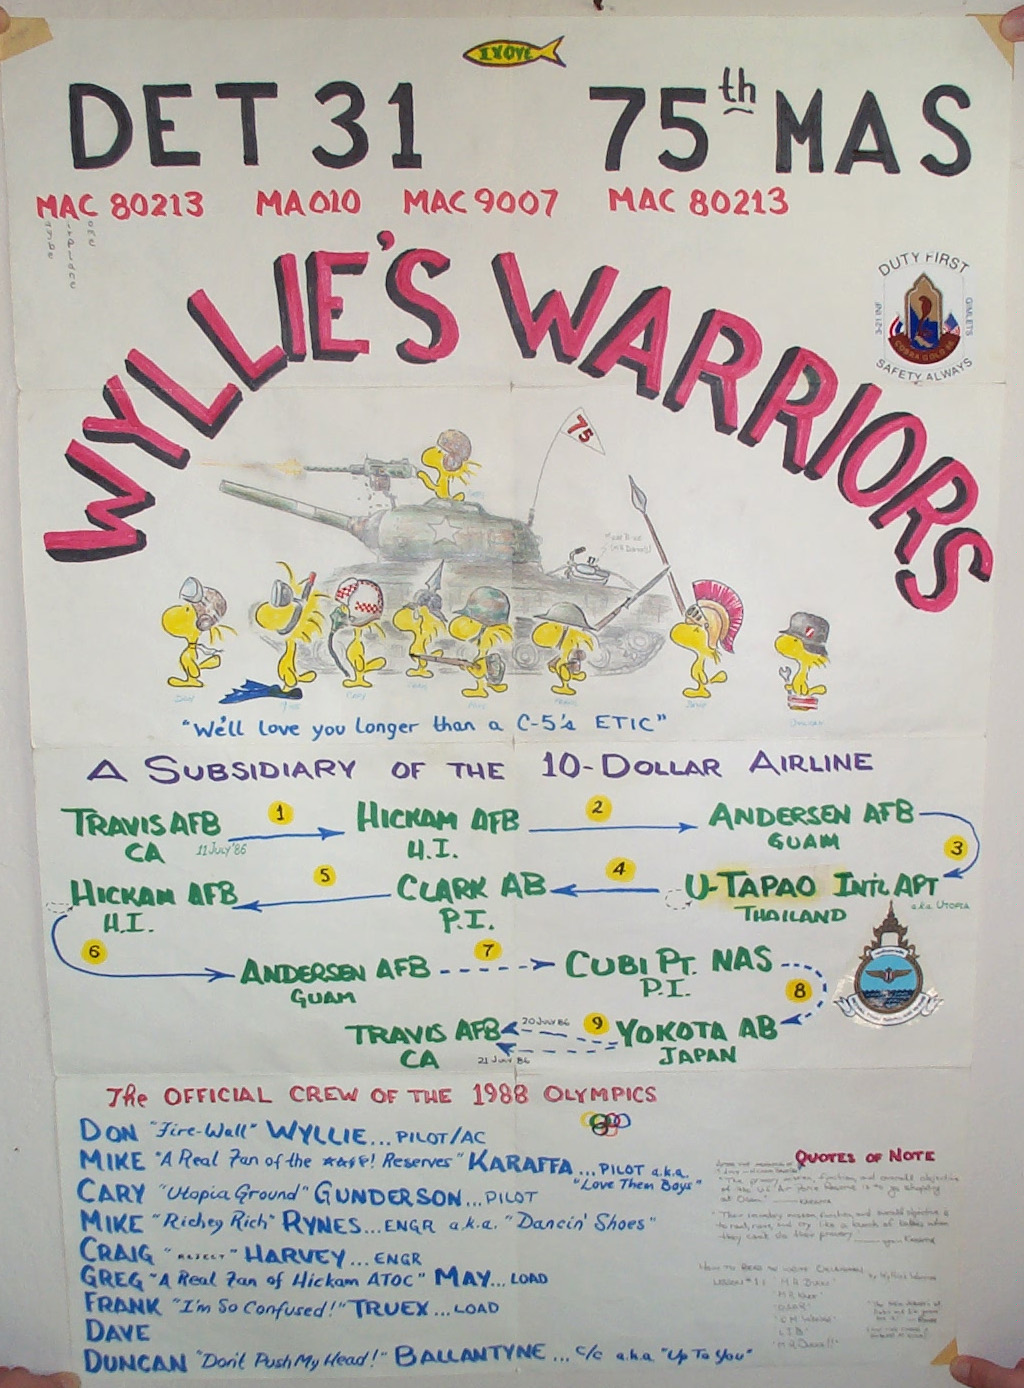 ΙΧΘΥΣ
DET 31 75th MAS
MAC 80213 MA010 MAC 9007 MAC 80213
aybe irplane ome
WYLLIE'S WARRIORS
DUTY FIRST
3-21 INF
GIMLETS
COBRA GOLD 86
SAFETY ALWAYS
75
"We'll love you longer than a C-5's ETIC"
A SUBSIDIARY OF THE 10-DOLLAR AIRLINE
TRAVIS AFB 1 HICKAM AFB 2 ANDERSEN AFB
CA 11 July '86 H.I. GUAM 3
HICKAM AFB 5 CLARK AB 4 U-TAPAO INT'L APT
H.I. P.I. THAILAND a.k.a. UTOPIA
6 ANDERSEN AFB 7 CUBI PT. NAS
GUAM P.I. 8
TRAVIS AFB 20 JULY 86 9 YOKOTA AB
CA 21 JULY 86 JAPAN
The OFFICIAL CREW OF THE 1988 OLYMPICS
DON "Fire-Wall" WYLLIE... PILOT/AC
MIKE "A Real Fan of the ★★$#! Reserves" KARAFFA... PILOT a.k.a. "Love Them Boys"
CARY "Utopia Ground" GUNDERSON... PILOT
MIKE "Richey Rich" RYNES... ENGR a.k.a. "Dancin' Shoes"
CRAIG "REJECT" HARVEY... ENGR
GREG "A Real Fan of Hickam ATOC" MAY... LOAD
FRANK "I'm So Confused!" TRUEX... LOAD
DAVE
DUNCAN "Don't Push My Head!" BALLANTYNE... C/C a.k.a "Up To You"
QUOTES OF NOTE